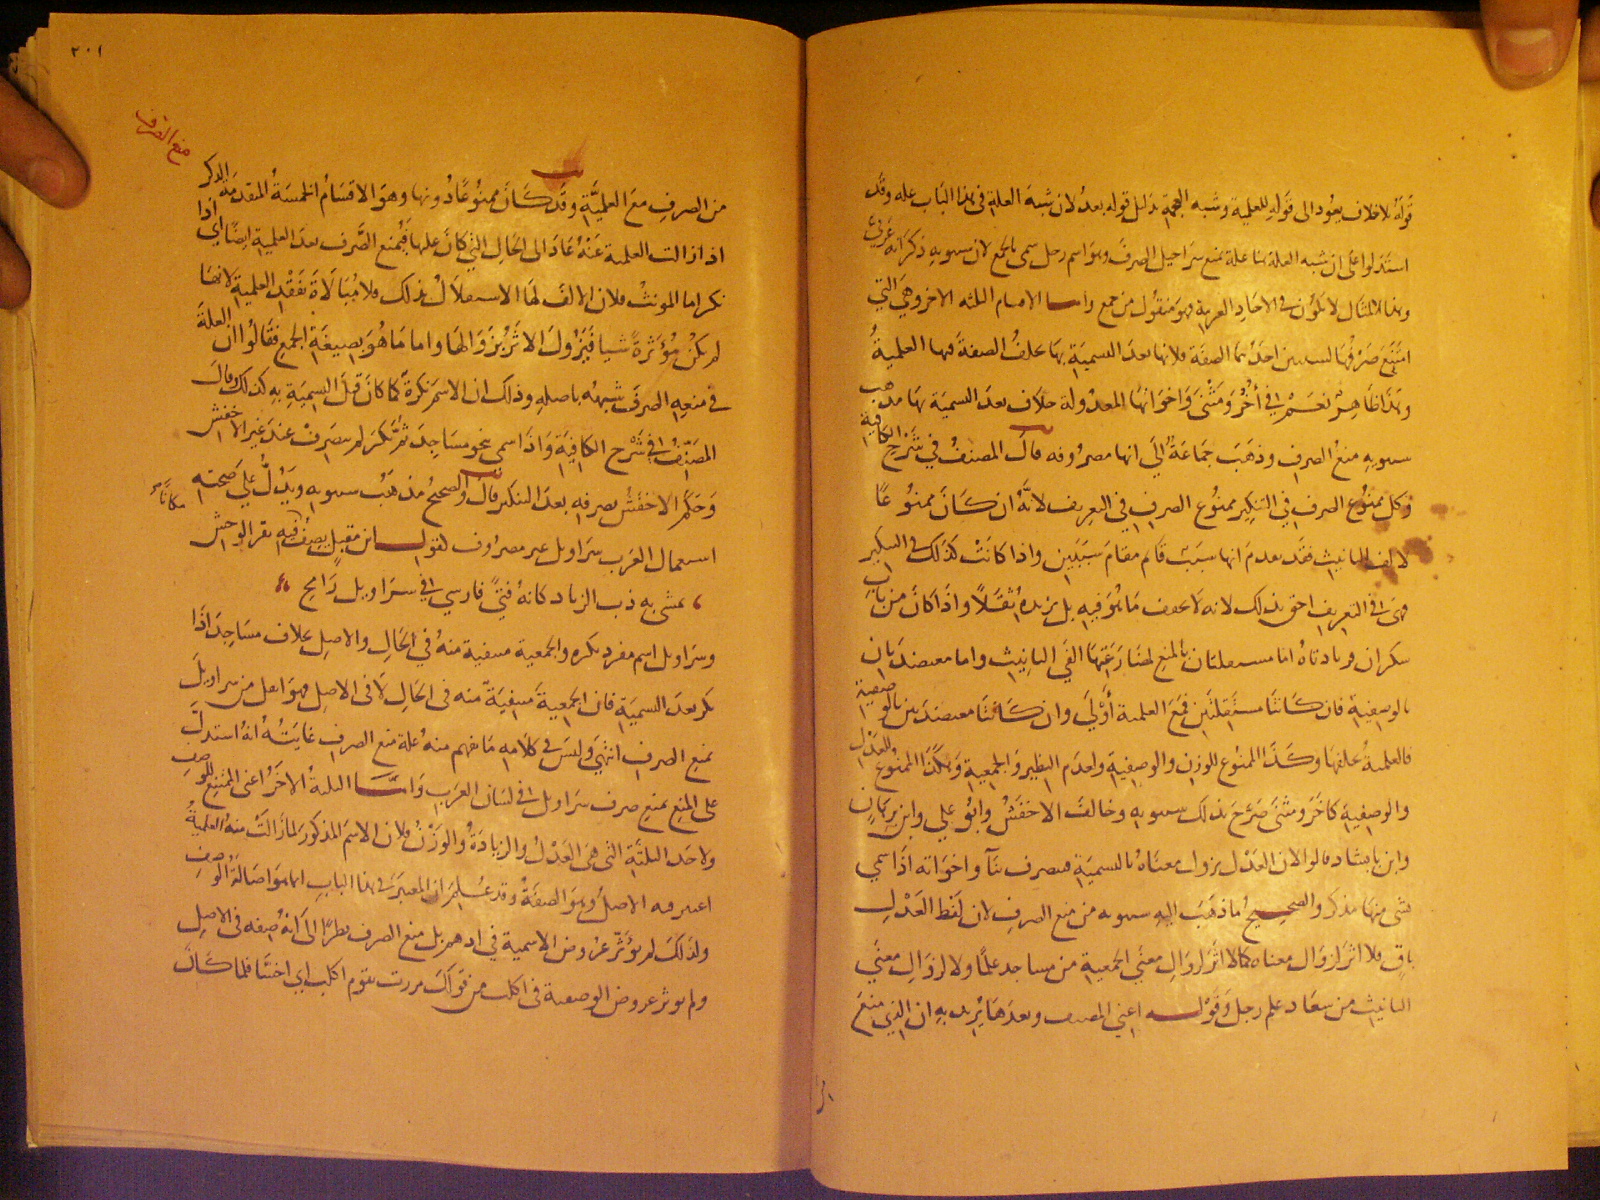 قوله لا خلاف يعود الى قوله للعلمية وشبه العجمة بدليل قوله بعد لان شبه العلة في هذا الباب عله وقد
استدلوا على ان شبه العلة هنا علة بمنع سراحيل الصرف وهو اسم رجل سمى بالجمع لان سيبويه ذكر انه عربي
وهذا المثال لا يكون في الاحاد العربية فهو منقول من جمع واما الاقسام الثلثه الاخر وهي التي
امتنع صرفها لسببين احدهما الصفة فلانها بعد التسمية بها تخلف الصفة فيها العلمية
وهذا ظاهر نعم في أخر ومثنى واخواتها المعدولة خلاف بعد التسمية بها مذهب
سيبويه منع الصرف وذهب جماعة إلى انها مصروفه قال المصنف في شرح الكافية
وكل ممنوع الصرف في التنكير ممنوع الصرف في التعريف لانه ان كان ممنوعا
لالف التانيث فقد تقدم انها سبب قام مقام سببين واذا كانت كذلك في التنكير
فهى في التعريف احق بذلك لانه لا يخفف ما هو فيه بل يزيده ثقلا واذا كان من باب
سكران فزيادتاه اما مستقلتان بالمنع لمضارعتهما الفي التانيث واما معتضدتان
بالوصفية فان كانتا مستقلتين فمع العلمية أولى وان كانتا معتضدتين بالوصفية
فالعلمية تخلفها وكذا الممنوع للوزن والوصفية ولعدم النظير والجمعية وهكذا الممنوع للعدل
والوصفية كأخر ومثنى صرح بذلك سيبويه وخالف الاخفش وابو علي وابن برهان
وابن بابشاد قالوا لان العدل يزول معناه بالتسمية فيصرف ثنآ واخواته اذا سمي
بشى منها مذكر والصحيح ما ذهب اليه سيبويه من منع الصرف لان لفظ العدل
باق فلا اثر لزوال معناه كما لا اثر لزوال معنى الجمعية من مساجد علما ولا لزوال معنى
التانيث من سعاد علم رجل وقوله اعني المصنف وبعدها يريد به ان الذي منع
٢٠١
منع الصرف
من الصرف مع العلمية وقد كان ممنوعا دونها وهو الاقسام الخمسة المقدمة الذكر
اذا زالت العلمية عنه عاد الى الحال التي كان عليها فيمنع الصرف بعد العلمية ايضا أي اذا
نكر اما المونث فلان الالف لها الاستقلال بذلك فلا مبالاة بفقد العلمية لانها
لم تكن مؤثرة شيا فيزول الاثر بزوالها واما ما هو بصيغة الجمع فقالوا ان العلة
في منعه الصرف شبهه باصله وذلك ان الاسم نكرة كما كان قبل التسمية به كذلك وقال
المصنف في شرح الكافية واذا سمى بنحو مساجد ثم نكر لم ينصرف عند غير الاخفش
وحكم الاخفش بصرفه بعد التنكير قال والصحيح مذهب سيبويه ويدل علي صحته
استعمال العرب سراويل غير مصروف لقول ابن مقبل يصف فيه بقر الوحش
يمشى به ذب الزياد كانه فتى فارسي في سراويل رامح
وسراويل اسم مفرد نكره والجمعية منتفية منه في الحال والاصل بخلاف مساجد اذا
نكر بعد التسمية فان الجمعية منتفية منه فى الحال لا فى الاصل فهو اعل من سراويل
بمنع الصرف انتهى وليس في كلامه ما يفهم منه علة منع الصرف غايته انه استدل
على المنع بمنع صرف سراويل في لسان العرب واما الثلثة الاخر اعنى الممتنع للوصف
ولاحد الثلثة التى هى العدل والزيادة والوزن فلان الاسم المذكور لما زالت منه العلمية
اعتبر فيه الاصل وهو الصفة وقد علم ان المعتبر في هذا الباب انما هو اصالة الوصف
ولذلك لم يؤثر عروض الاسمية في ادهم بل منع الصرف نظرا الى انه صفه فى الاصل
ولم يوثر عروض الوصفية فى اكلب من قولك مررت بقوم اكلب اي اخسا فلما كان